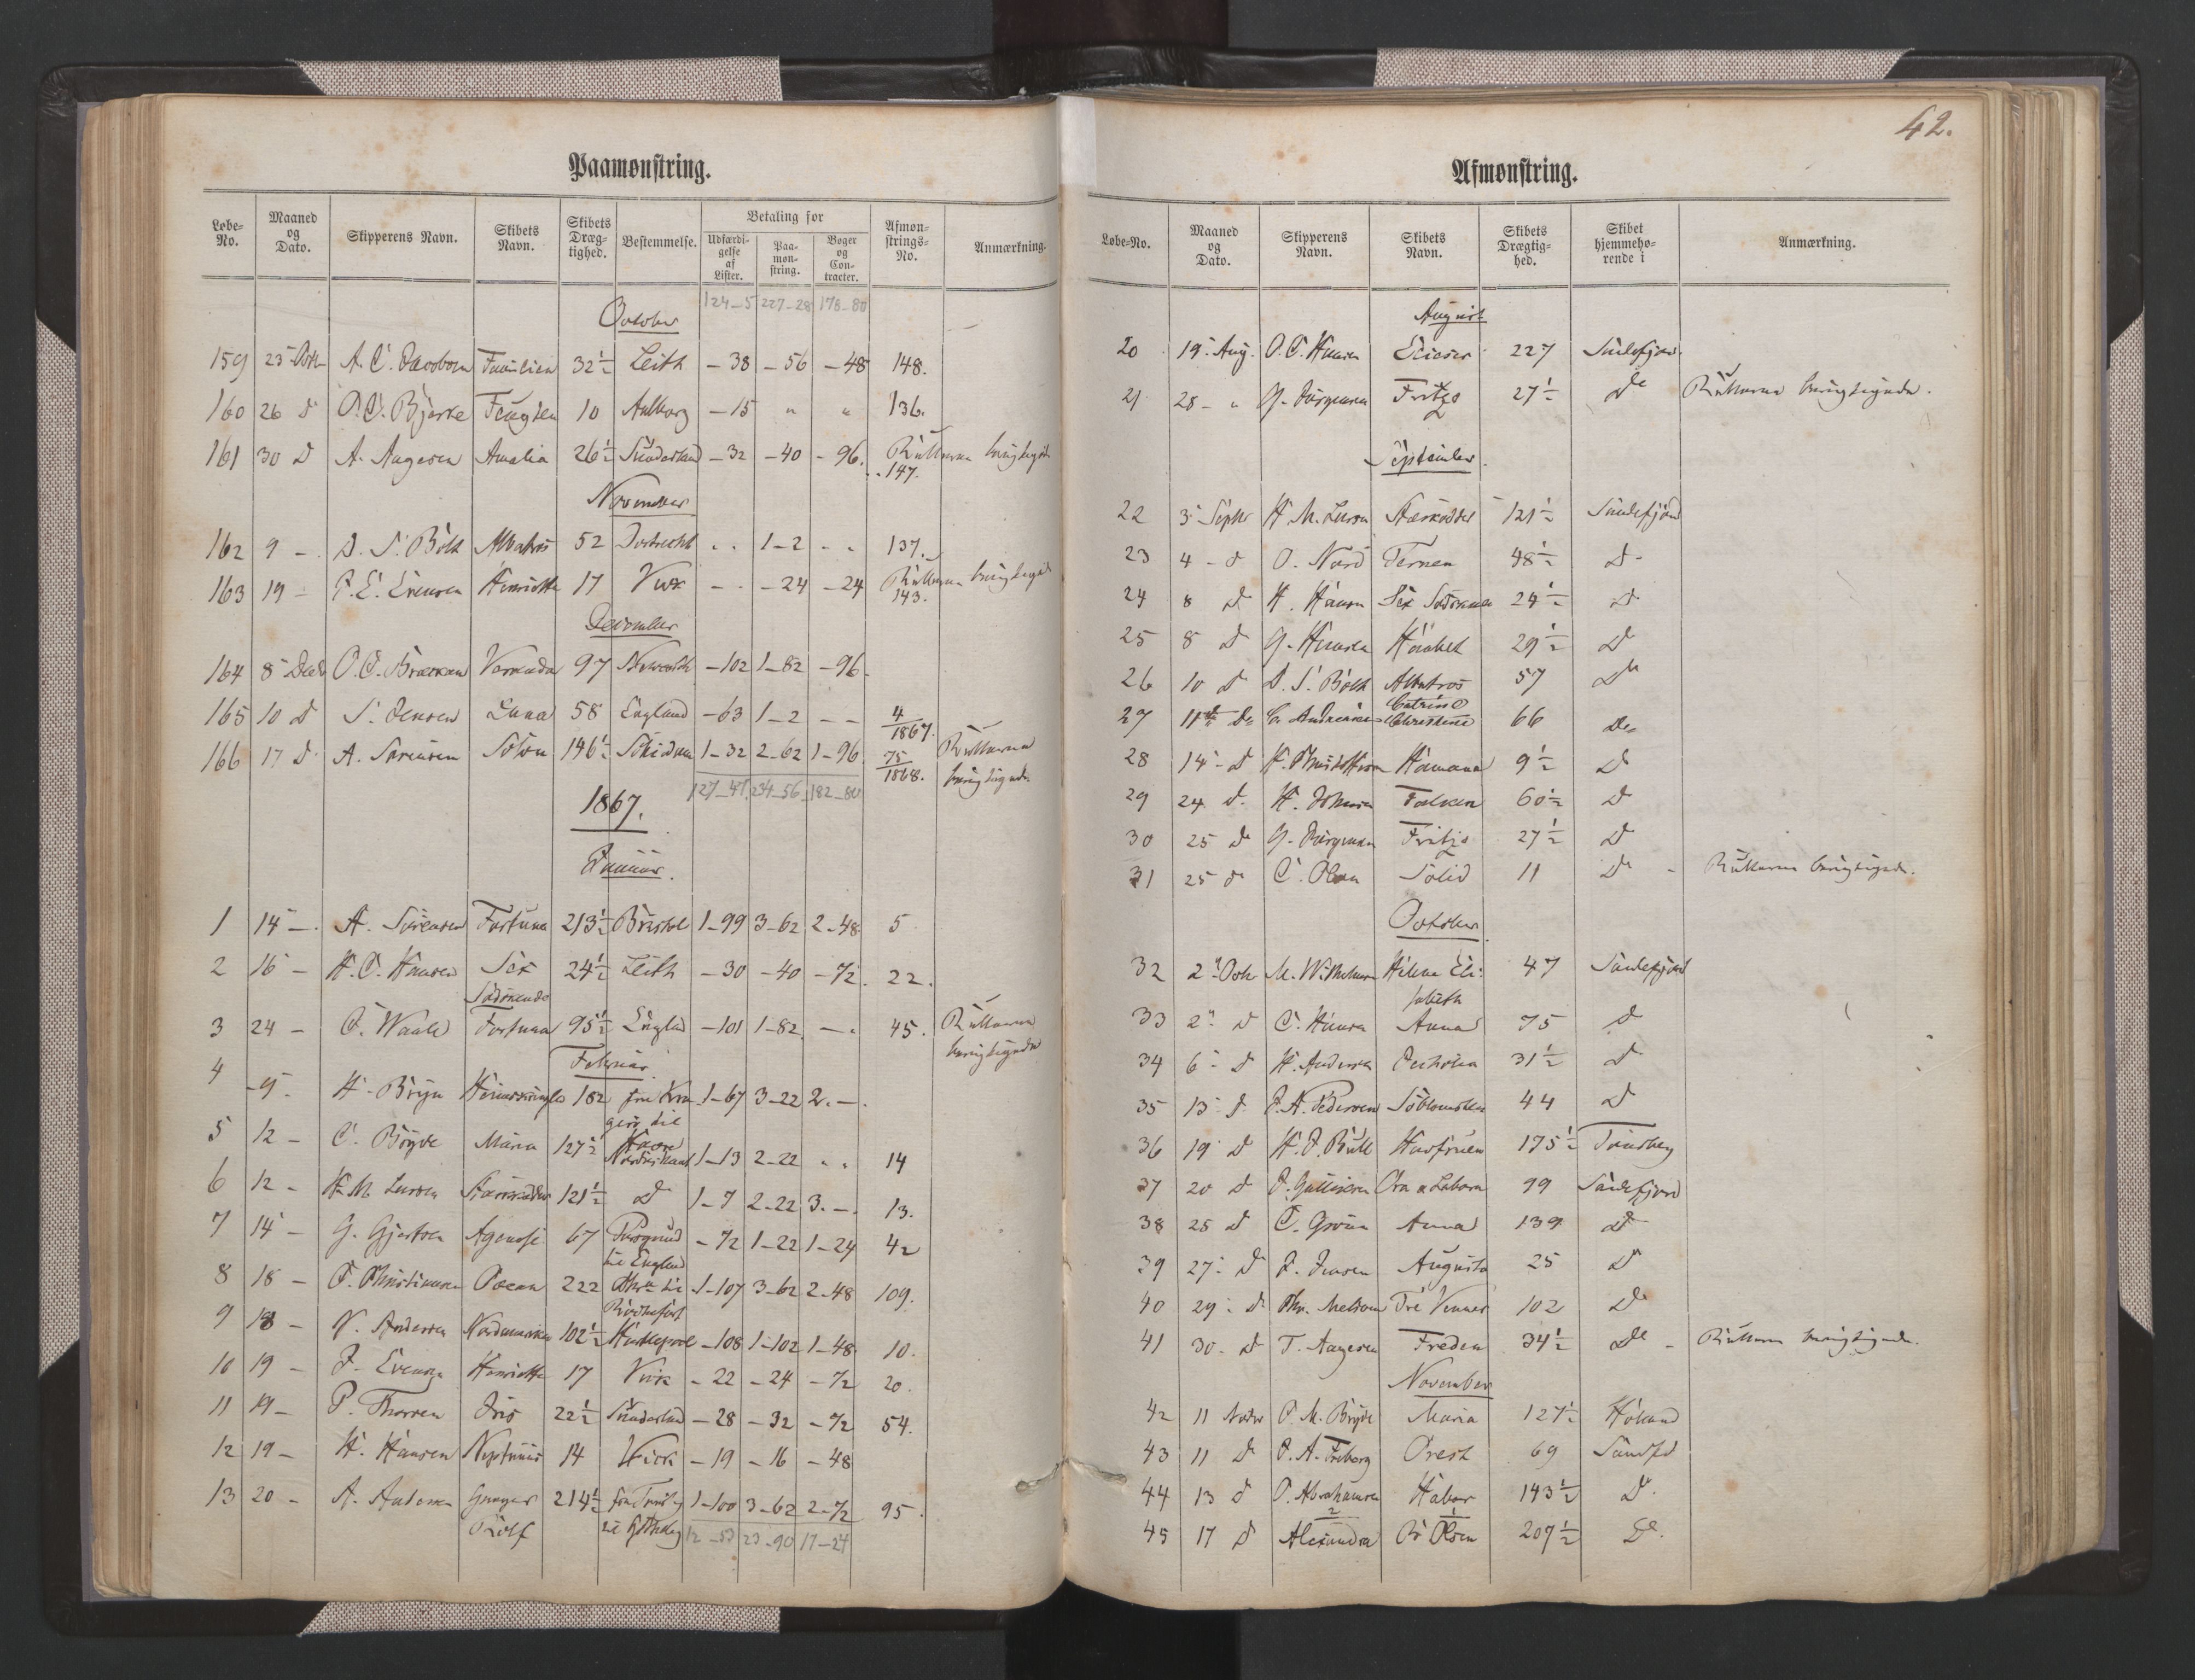 Paamønstring.
Løbe-No. Maaned og Dato. Skipperens Navn. Skibets Navn. Skibets Dræg-tighed. Bestemmelse. Betaling for Udfærdi-gelse af Lister. Paa-møn-string. Bøger og Con-tracter. Afmøn-strings-No. Anmærkning.
124-5 227-28 178-80
October
159 23 Octr A. C. Jacobsen Familien 32½ Leith - 38 - 56 - 48 148.
160 26 d O. C. Bjerke 10 Aalborg - 15 " " 136.
161 30 D A. Aagesen Amalia 26½ Sunderland - 32 - 40 - 96. Rullerne
147.
November
162 9 - Albatros 52 Dortrecht . . 1-2 . . 137.
163 19 - P. E. Evensen Henriette 17 Vick - . - 24 - 24 Rullerne
143.
December
164 8 Decb Veranda 97 - 102 1-82 - 96.
165 10 D S. Jensen Luna 58 England - 63 1-2 - - 4/1867.
166 17 D A. Sørensen Solon 146½ Schiedam 1-32 2-62 1-96 75/1868. Rullerne
127-41 234-56 182-80
1867.
Januar.
1 14 - A. Sørensen Fortuna 213½ Bristol 1-99 3-62 2-48 5
2 16 - H. C. Hansen Sex 24½ Leith - 30 - 40 - 72. 22.
Sødskende
3 24 - Fortuna 95½ Engld - 101 1-82 - . 45. Rullerne
Februar.
4 - 9. H. Bryn 182 fra Kra- 1-67 3-22 2. -.
gerø til
5 12 - C. Bryde Maria 127½ Havre 1-13 2-22 . . 14
6 12 - H. M. Larsen Stærkodder 121½ D 1-7 2-22 3. -. 13.
7 14 - G. Gjertsen 67 Porsgrund - 72 1-22 1-24 42
til England
8 18 - F. Christiansen Ocean 222 1-107 3-62 2-48 109.
Rochefort
9 18 - N. Andersen 102½ Hartlepool - 108 1-102 1-48 10.
10 19 - J. Evensen Henriette 17 Vick - 22 - 24 - 72 20.
11 19 - P. Thorsen Iris 22½ Sunderland - 28 - 32 - 72 54.
12 19 - H. Hansen Neptunus 14 Wick - 19 - 16 - 48
13 20 - A. Andersen Ganger 214½ fra Tønsbg 1-100 3-62 2-72 95.
Rolf til 12-53 23-90 17-24
42.
Afmønstring.
Løbe-No. Maaned og Dato. Skipperens Navn. Skibets Navn. Skibets Drægtig-hed. Skibet hjemmehø-rende i Anmærkning.
August
20 19 Aug. O. C. Hansen 227 Sandefjord.
21 28 - " G. Jørgensen Fritzo 27½ De Rullerne berigtigede.
September.
22 3 Septr H. M. Larsen Stærkodder 121½ Sandefjord
23 4 - d O. Nord Ternen 48½ D
24 8 D H. Hansen Sex Sødskende 24½ D
25 8 D G. Hansen Haabet 29½ D
26 10 D Albatros 57 D
Catrine
27 11 D Christine 66 De
28 14 - D H. Christoffersen 9½ D
29 24 d. H. Johnsen Falken 60½ D
30 25 D G. Jørgensen Fritzo 27½ D
31 25 d C. Olsen Solid 11 D - Rullerne berigtigede.
October.
32 2 Octr M. Wilhelmsen Helene Eli- 47 Sandefjord
sabeth
33 2 D C. Hansen Anna 75 D
34 6 - D H. Andersen 31½ D
35 15 d J. A. Pedersen Søblomsten 44 D
36 19 D H. J. Bull Havfruen 175½ Tønsberg
37 20 D J. Gulliksen Ora & Labora 99 Sandefjord
38 25 D C. Grønn Anna 139 D
39 27 - D J. Jensen Augusta 25 D
40 29 - D Chr. Melsom Tre Venner 102 D
41 30 - D T. Aagesen Freden 34½ De - Rullerne berigtigede.
November
42 11 Novbr P. M. Bryde Maria 127½
43 11 D J. A. Freberg Orest 69 Sandfd
44 13 D O. Abrahamsen Habor 143½ D.
2 1
45 17 D Alexandra Olsen 209½ De.